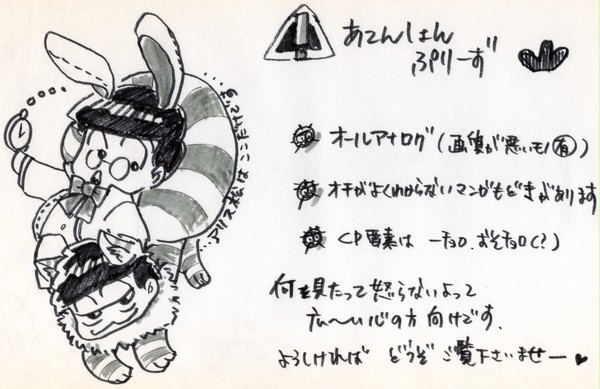 あてんしょん
ぷりーず
オールアナログ(画質が悪いモノ有)
オチがよくわからないマンガもどきがあります
CP要素は 一チョロ、おそチョロ(?)
何を見たって怒らないよって
広〜い心の方向けです。
よろしければ どうぞ ご覧下さいませー♥
…アリス松はここまでです…